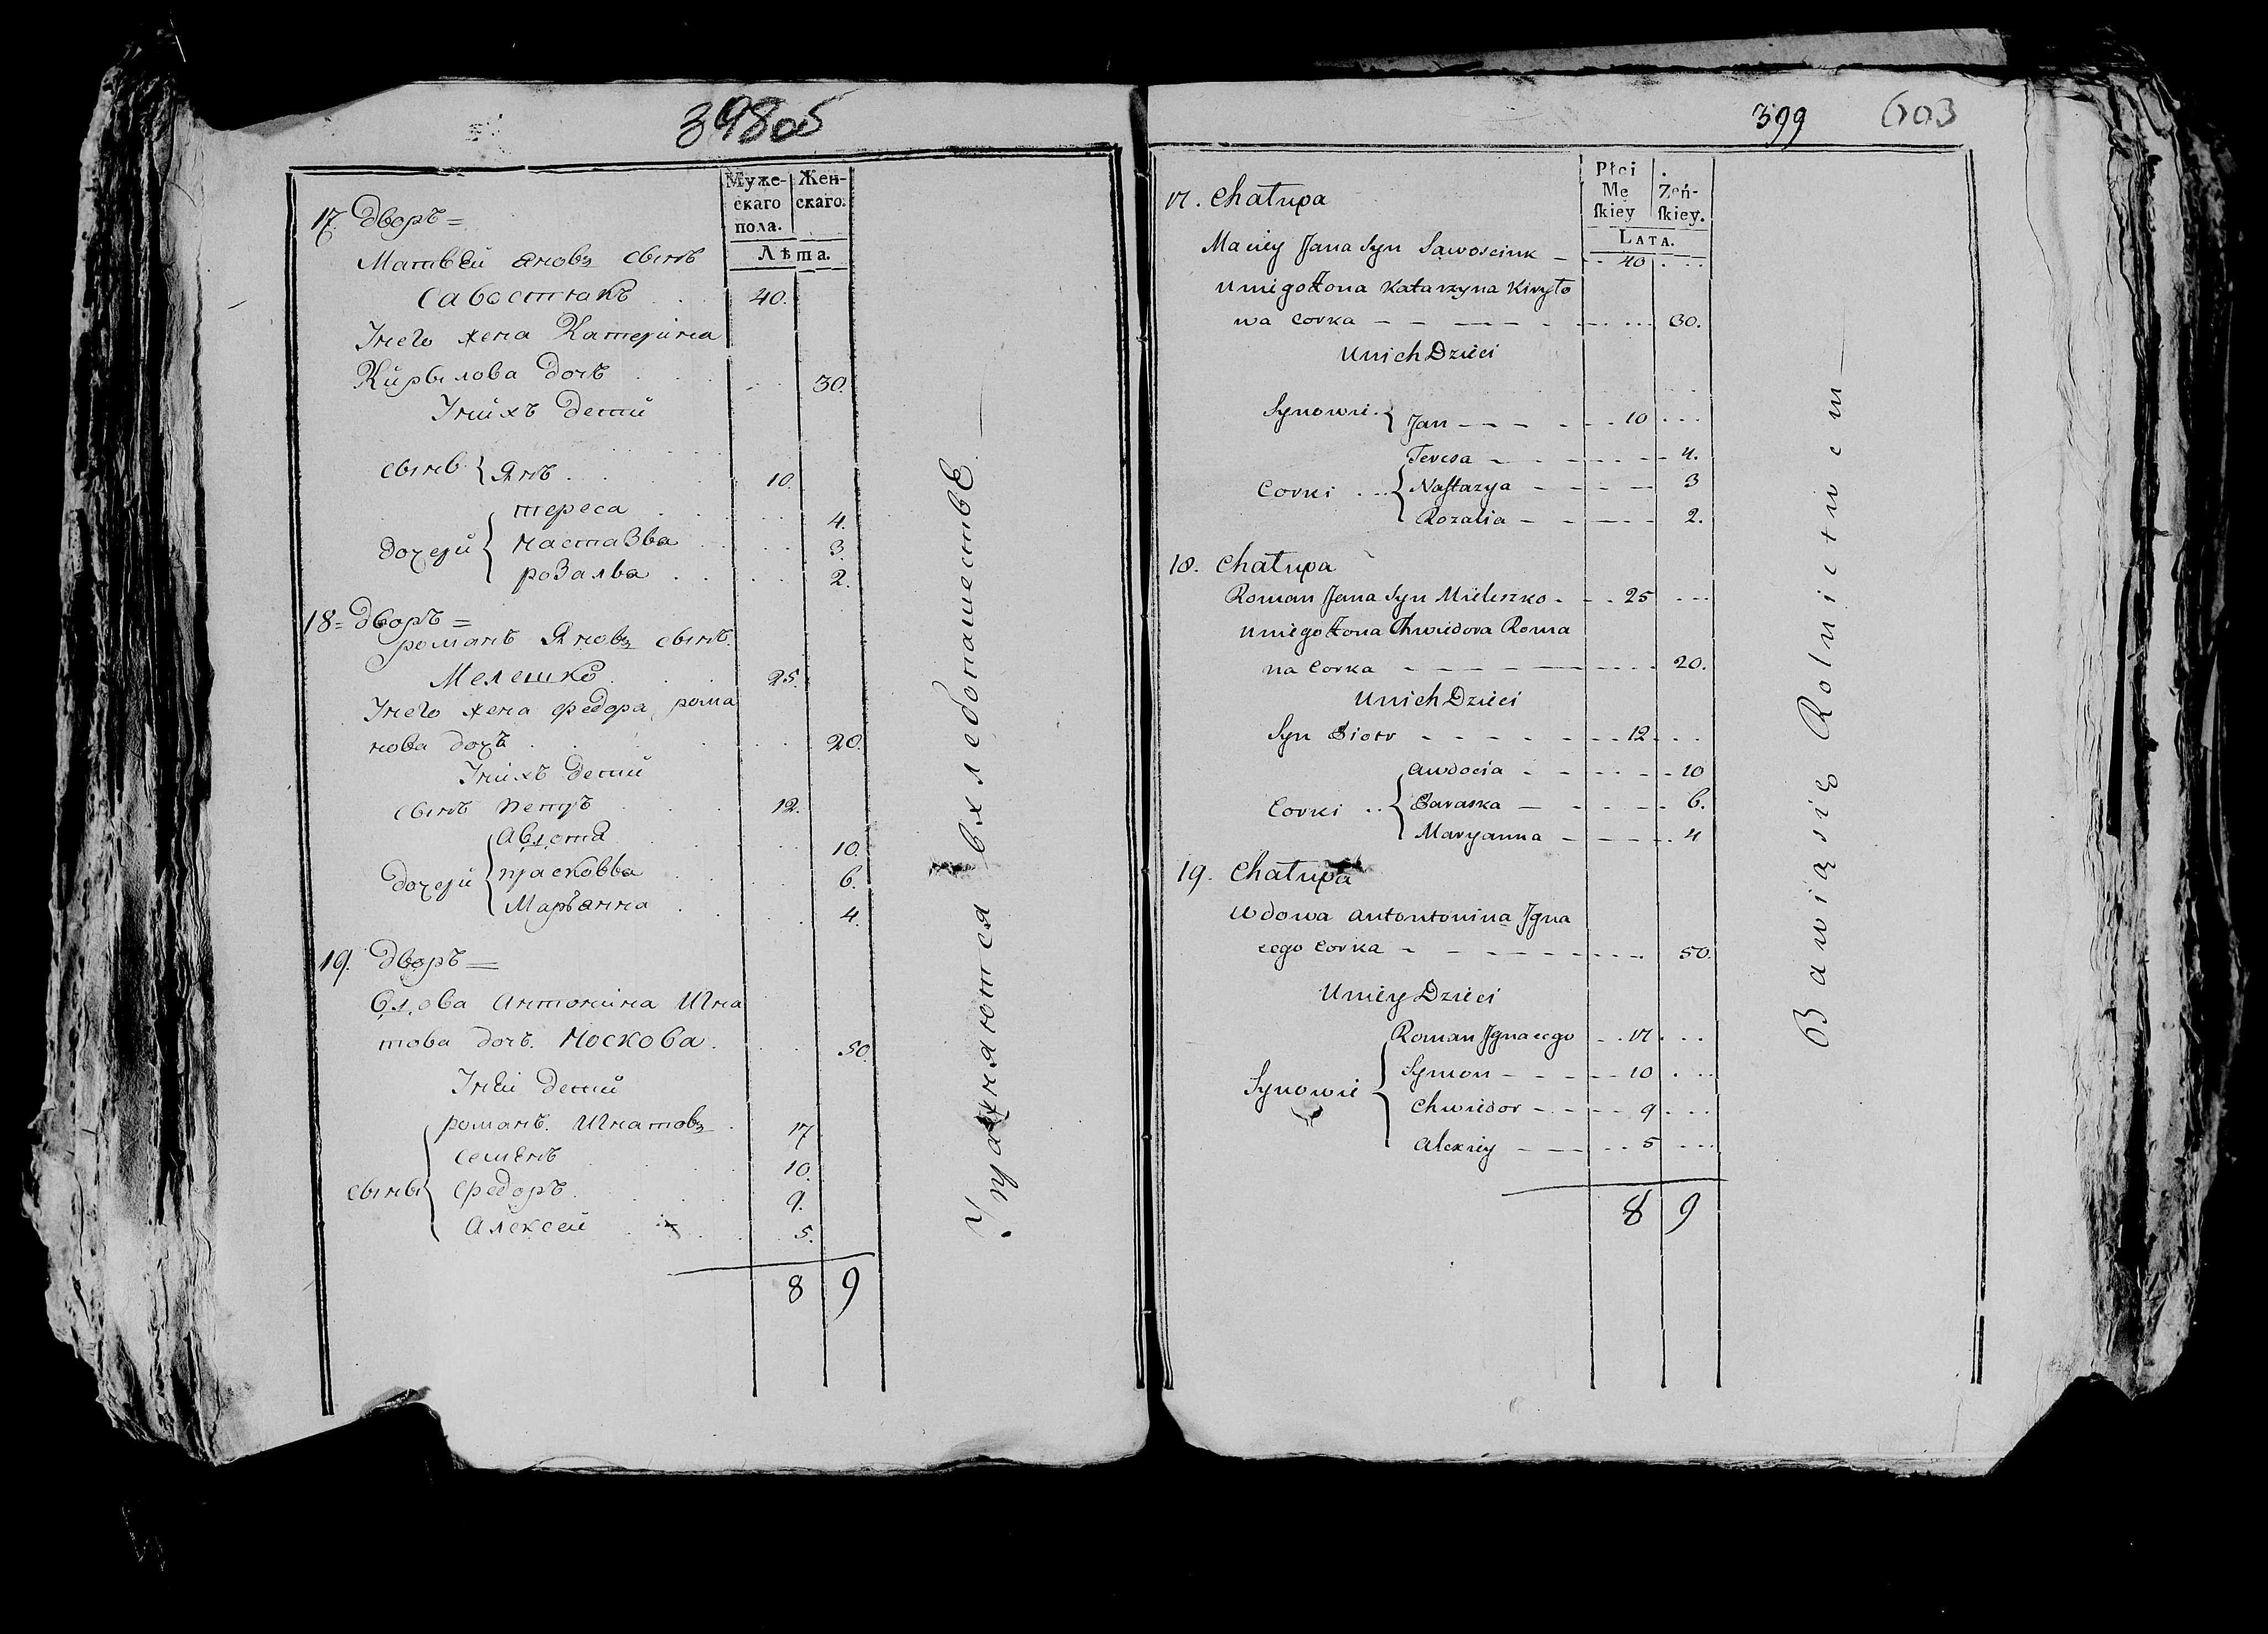 398об
Муже-
скаго
пола.
Жен-
скаго.
Лѣта.
17. Дворъ =
Матвѣй Яновъ сынъ
Савостюкъ . . 40.
Унего жена Катерина
Кирылова дочь . . . 30.
Унихъ детий
сынъ { Янъ . . . 10.
тереса . . . 4.
дочерй { настазья . . . 3.
розалья . . . 2.
18 = Дворъ =
романъ Яновъ сынъ
Мелешко . . . 25.
Унего жена федора рома
нова дочъ . . . 20.
Унихъ детий
сынъ петръ . . . 12.
Авдотя . . . 10.
дочерй { прасковья . . . 6.
Марьянна . . . 4.
19. Дворъ =
Вдова Антонина Игна
това дочь Москова . . . 50.
Уней детий
романъ Игнатовъ . 17
семенъ . . . 10.
сыны { федоръ . . . 9.
Алексей . . . 5.
8 9
Упражняются в хлебопашестве
399 603
Płci
Mę
ſkiey
Zeń-
ſkiey.
LATA.
17. Chałupa
Maciey Jana Syn Sawościuk – – 40 . . .
Uniego Żona Katarzyna Kiryło
wa Corka – – – – – . . . 30.
Unich Dzieci
Synowie { Jan – – – – – 10 . . .
Teresa – – – – – 4.
Corki . . { Naſtazya – – – – 3
Rozalia – – – – – 2.
18. Chałupa
Roman Jana Syn Mieleszko – – . 25 . . .
Uniego Żona Chwiedora Roma
na Corka – – – – – – . . . 20.
Unich Dzieci
Syn Piotr – – – – – – – 12 . . .
Awdocia – – – – – 10
Corki . . { Paraska – – – – – 6.
Maryanna – – – – . 4
19. Chałupa
Wdowa Antontonina Jgna
cego Corka – – – – – – – . . . 50.
Uniey Dzieci
Roman Jgnacego – . . 17 . . .
Symon – – – – – 10 . . .
Synowie { Chwiedor – – – – – 9 . . .
Alexiey – – – . . 5 . . .
8 9
Bawią się Rolnictwem